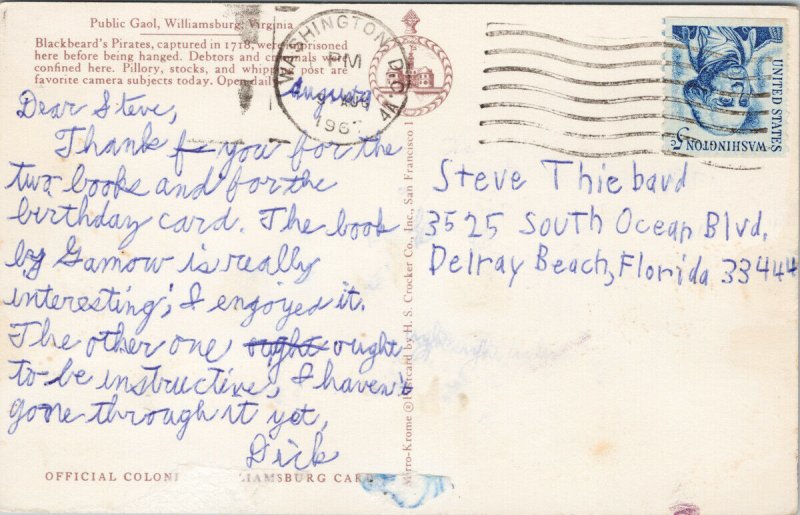 Public Gaol, Williamsburg, Virginia
Blackbeard's Pirates, captured in 1718, were imprisoned
here before being hanged. Debtors and criminals were
confined here. Pillory, stocks, and whipping post are
favorite camera subjects today. Open daily
WASHINGTON D.C.
PM
AUG
1967
UNITED STATES
WASHINGTON 5c
August
Dear Steve,
Thank f you for the
two books and for the
birthday card. The book
by Gamow is really
interesting; I enjoyed it.
The other one ought ought
to be instructive, I haven't
gone through it yet,
Dick
OFFICIAL COLONI LIAMSBURG CARD
Mirro-Krome ® Postcard by H. S. Crocker Co., Inc., San Francisco
Steve Thiebaud
3525 South Ocean Blvd.
Delray Beach, Florida 33444